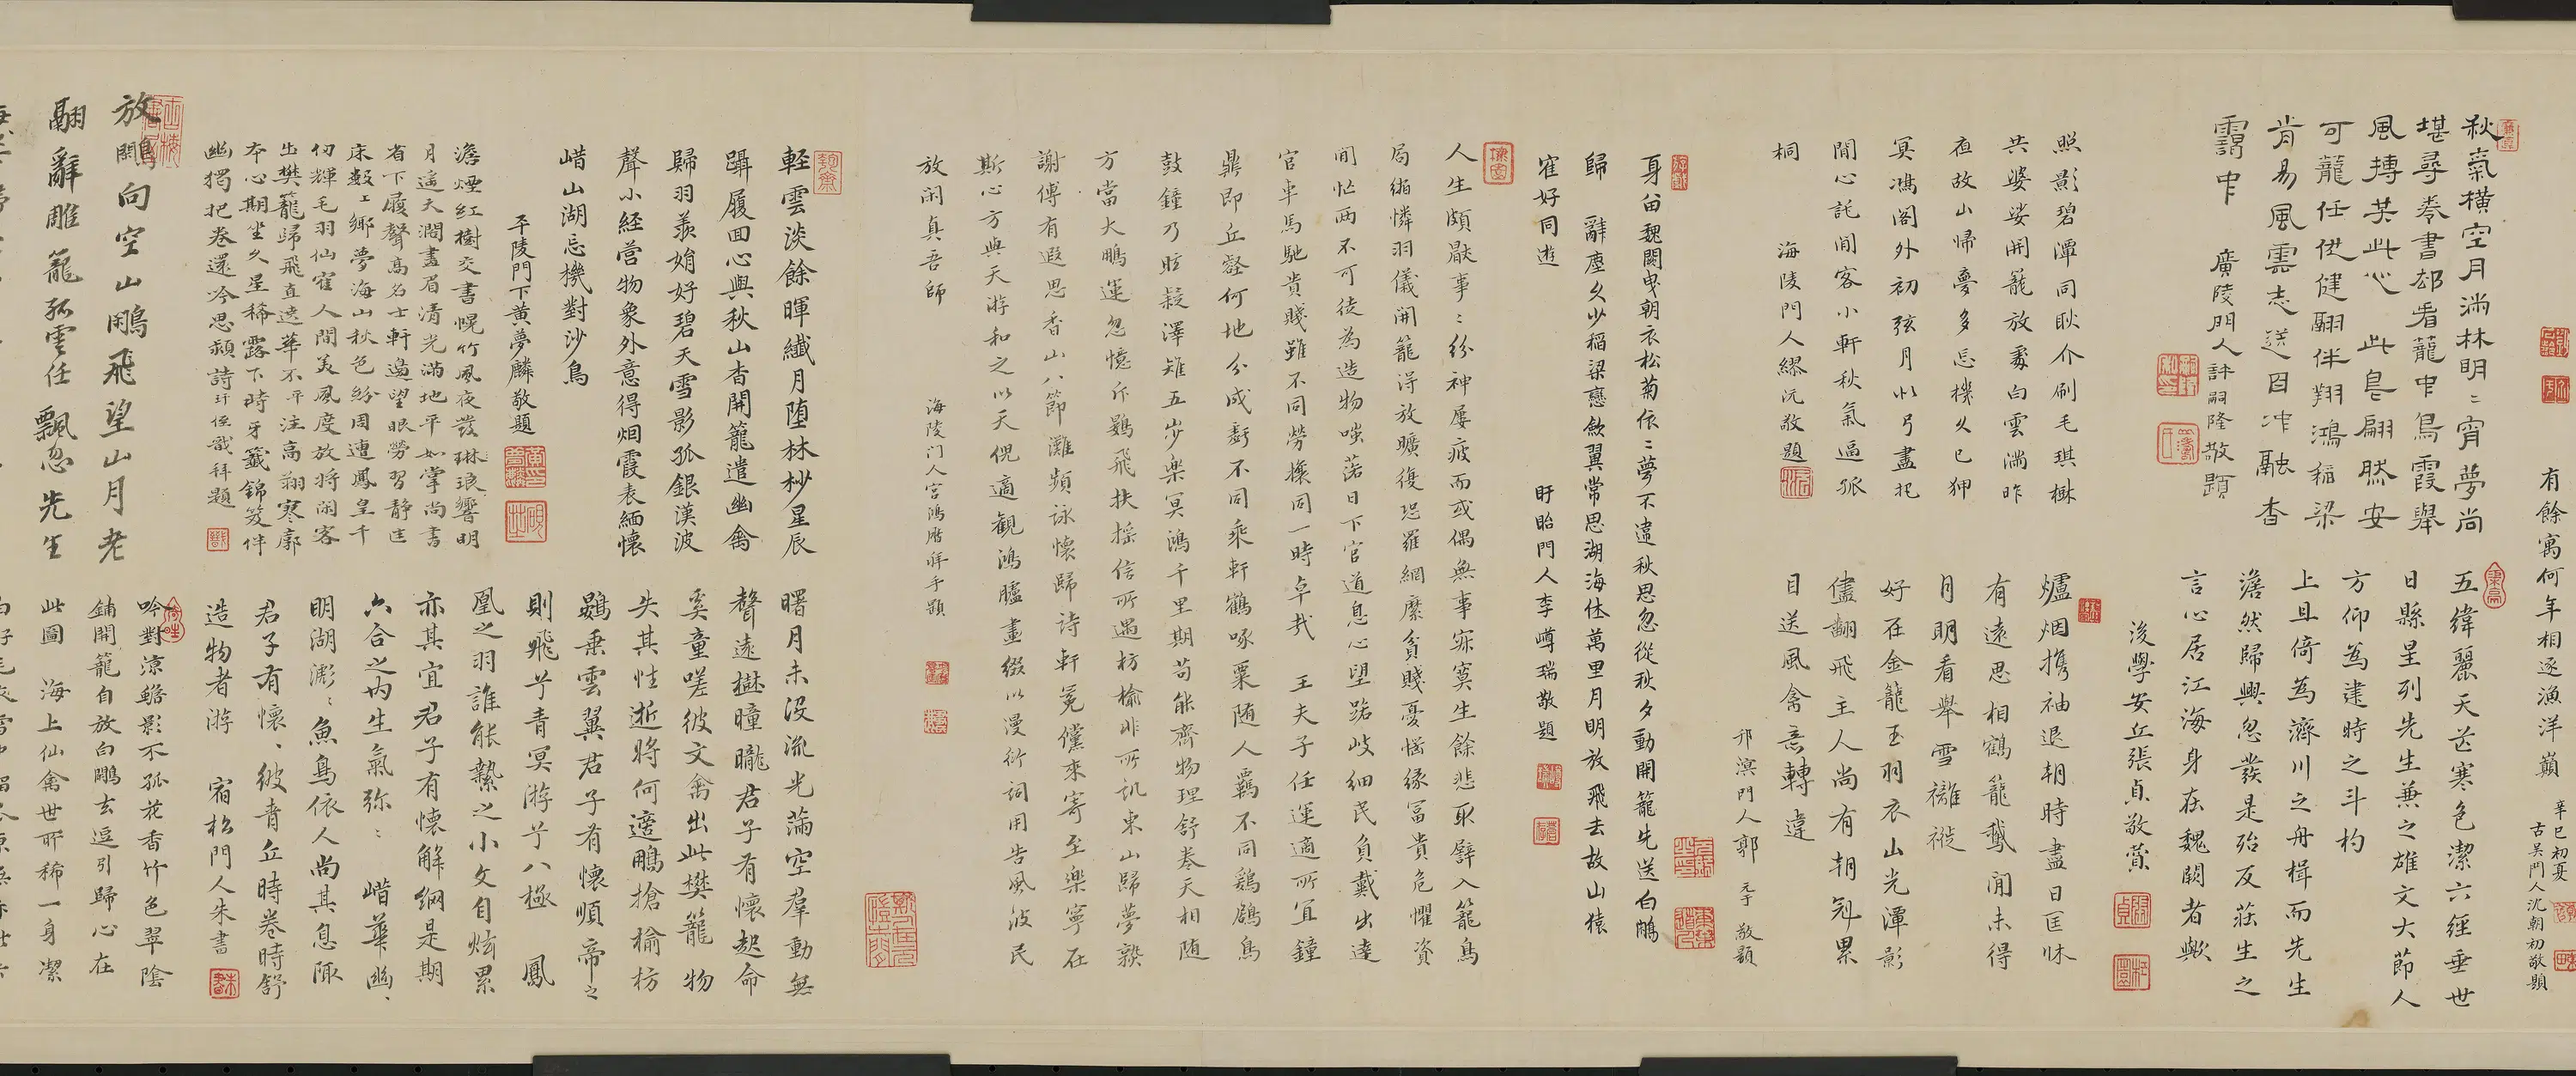 有餘寓何年相逐漁洋巔
辛巳初夏
古吳門人沈朝初敬題
秋氣橫空月滿林明〻宵夢尚
堪尋卷書却看蘢中鳥霞舉
風搏某此心 此鳥翩然安
可蘢任伊健翮伴翔鴻稻梁
肯易風雲志送目冲融杳
靄中 廣陵門人許嗣隆敬題
五緯麗天芒寒色潔六經垂世
日縣星列先生兼之雄文大節人
方仰為建時之斗杓
上且倚為濟川之舟楫而先生
澹然歸興忽發是殆反莊生之
言心居江海身在魏闕者歟
後學安丘張貞敬黨
照影碧潭同耿介刷毛琪樹
共婆娑開籠放處白雲滿昨
夜故山歸夢多忘機久已狎
冥鴻閣外初弦月似弓畫把
閒心託閒客小軒秋氣逼孤
桐 海陵門人繆沅敬題
爐烟携袖退朝時盡日匡牀
有遠思相鶴籠鵝閒未得
月明看舉雪襹褷
好在金籠玉羽衣山光潭影
儘翻飛主人尚有朝斜累
目送風禽意轉違
邗溟門人郭元釪敬題
身留魏闕曳朝衣松菊依〻夢不違秋思忽從秋夕動開籠先送白鷴
歸 辭塵久少稻梁戀斂翼常思湖海住萬里月明放飛去故山猿
隺好同遊 盱眙門人李嶟瑞敬題
人生頗厭事〻紛神屢疲而或偶無事寂寞生餘悲取譬入籠鳥
局縮憐羽儀開籠得放曠復恐羅網縻貧賤憂惱緣冨貴危懼資
閒忙兩不可徒為造物嗤落日下官道息心望路岐細民負戴出達
官車馬馳貴賤雖不同勞攘同一時卓哉 王夫子任運適所宜鐘
鼎即丘壑何地分成虧不同乘軒鶴啄粟随人羈不同鷄鶋鳥
鼓鐘乃眩疑澤雉五步樂冥鴻千里期苟能齊物理舒卷天相随
方當大鵬運忽憶斥鷃飛扶搖信所遇枋榆非所訊東山歸夢孰
謝傅有遐思香山八節灘頻詠懷歸詩軒冕儻來寄至樂寧在
斯心方與天游和之以天倪適觀鴻臚畫綴以漫衍詞用告風波民
放閑真吾師 海陵门人宮鴻曆拜手題
軽雲淡餘暉纖月墮林杪星辰
躡履囬心與秋山杳開籠遣幽禽
歸羽羨娟好碧天雪影孤銀漢波
聲小経营物象外意得烟霞表緬懷
㟙山湖忘機對沙鳥
平陵門下黄夢麟敬題
曙月未没流光滿空羣動無
聲遠樾曈曨君子有懷起命
奚童嗟彼文禽出此樊籠物
失其性逝將何適鵬搶榆枋
鷃乗雲翼君子有懷順帝之
則飛兮青冥游兮八極 鳳
凰之羽誰能縶之小文自炫累
亦其宜君子有懷解綱是期
六合之內生氣弥〻㟙華幽〻
明湖瀰〻魚鳥依人尚其息陬
君子有懷〻彼青丘時卷時舒
造物者游 宿松門人朱書
澹煙紅樹交書幌竹風夜發琳琅響明
月遙天濶畫眉清光滿地平如掌尚書
省下履聲高名士軒邊望眼勞習静匡
床數〻鄉夢海山秋色紛周遭鳳皇千
仞輝毛羽仙隺人間美風度放将闲客
出樊籠歸飛直遶華不注高翔寒廓
本心期坐久星稀露下時牙籤錦笈伴
幽獨把卷還吟思潁詩 玕侄戩拜題
吟對涼蟾影不孤花香竹色翠陰
鋪開籠自放白鷴去逗引歸心在
此圖 海上仙禽世所稀一身潔
放鷴向空山鷴飛望山月老
翮辭雕籠孤雲任飄忽先生